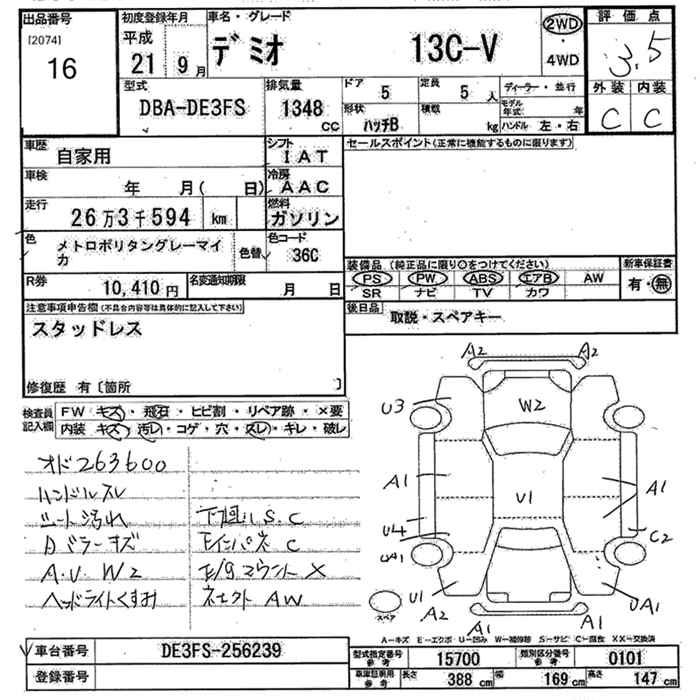 出品番号
[2074]
16
初度登録年月
平成
21 9月
車名・グレード
デミオ 13C-V
2WD
・
4WD
評価点
3.5
外装 内装
C C
型式
DBA-DE3FS
排気量
1348
CC
ドア
5
定員
5 人
形状
ハッチB
積載
kg
ディーラー・並行
モデル年式 年
ハンドル 左・右
車歴
自家用
シフト
IAT
セールスポイント(正常に機能するものに限ります)
車検
年 月( 日)
冷房
AAC
走行
26万3千594 km
燃料
ガソリン
色
メトロポリタングレーマイカ
色替
色コード
36C
装備品 (純正品に限り○をつけてください)
新車保証書
PS PW ABS エアB AW
SR ナビ TV カワ
有・無
R券
10,410円
名変通知期限
月 日
後日品
取説・スペアキー
注意事項申告欄(不具合内容等は具体的に記入して下さい)
スタッドレス
修復歴 有〔箇所 〕
検査員記入欄
FW キズ・飛石・ヒビ割・リペア跡・×要
内装 キズ・汚レ・コゲ・穴・スレ・キレ・破レ
オド263600
ハンドルスレ
シート汚れ
下廻りS.C
A.U W2
E/gマウントX
ヘッドライトくすみ
A2 A2
U3
W2
A1
U1
A1
U4
UA1
C2
U1
A2
A1 A1
UA1
スペア
A-キズ E-エクボ U-凹み W-補修跡 S-サビ C-腐食 XX-交換済
車台番号
DE3FS-256239
登録番号
型式指定番号
参考
15700
類別区分番号
参考
0101
車庫証明用
参考
長さ 388 cm
幅 169 cm
高さ 147 cm